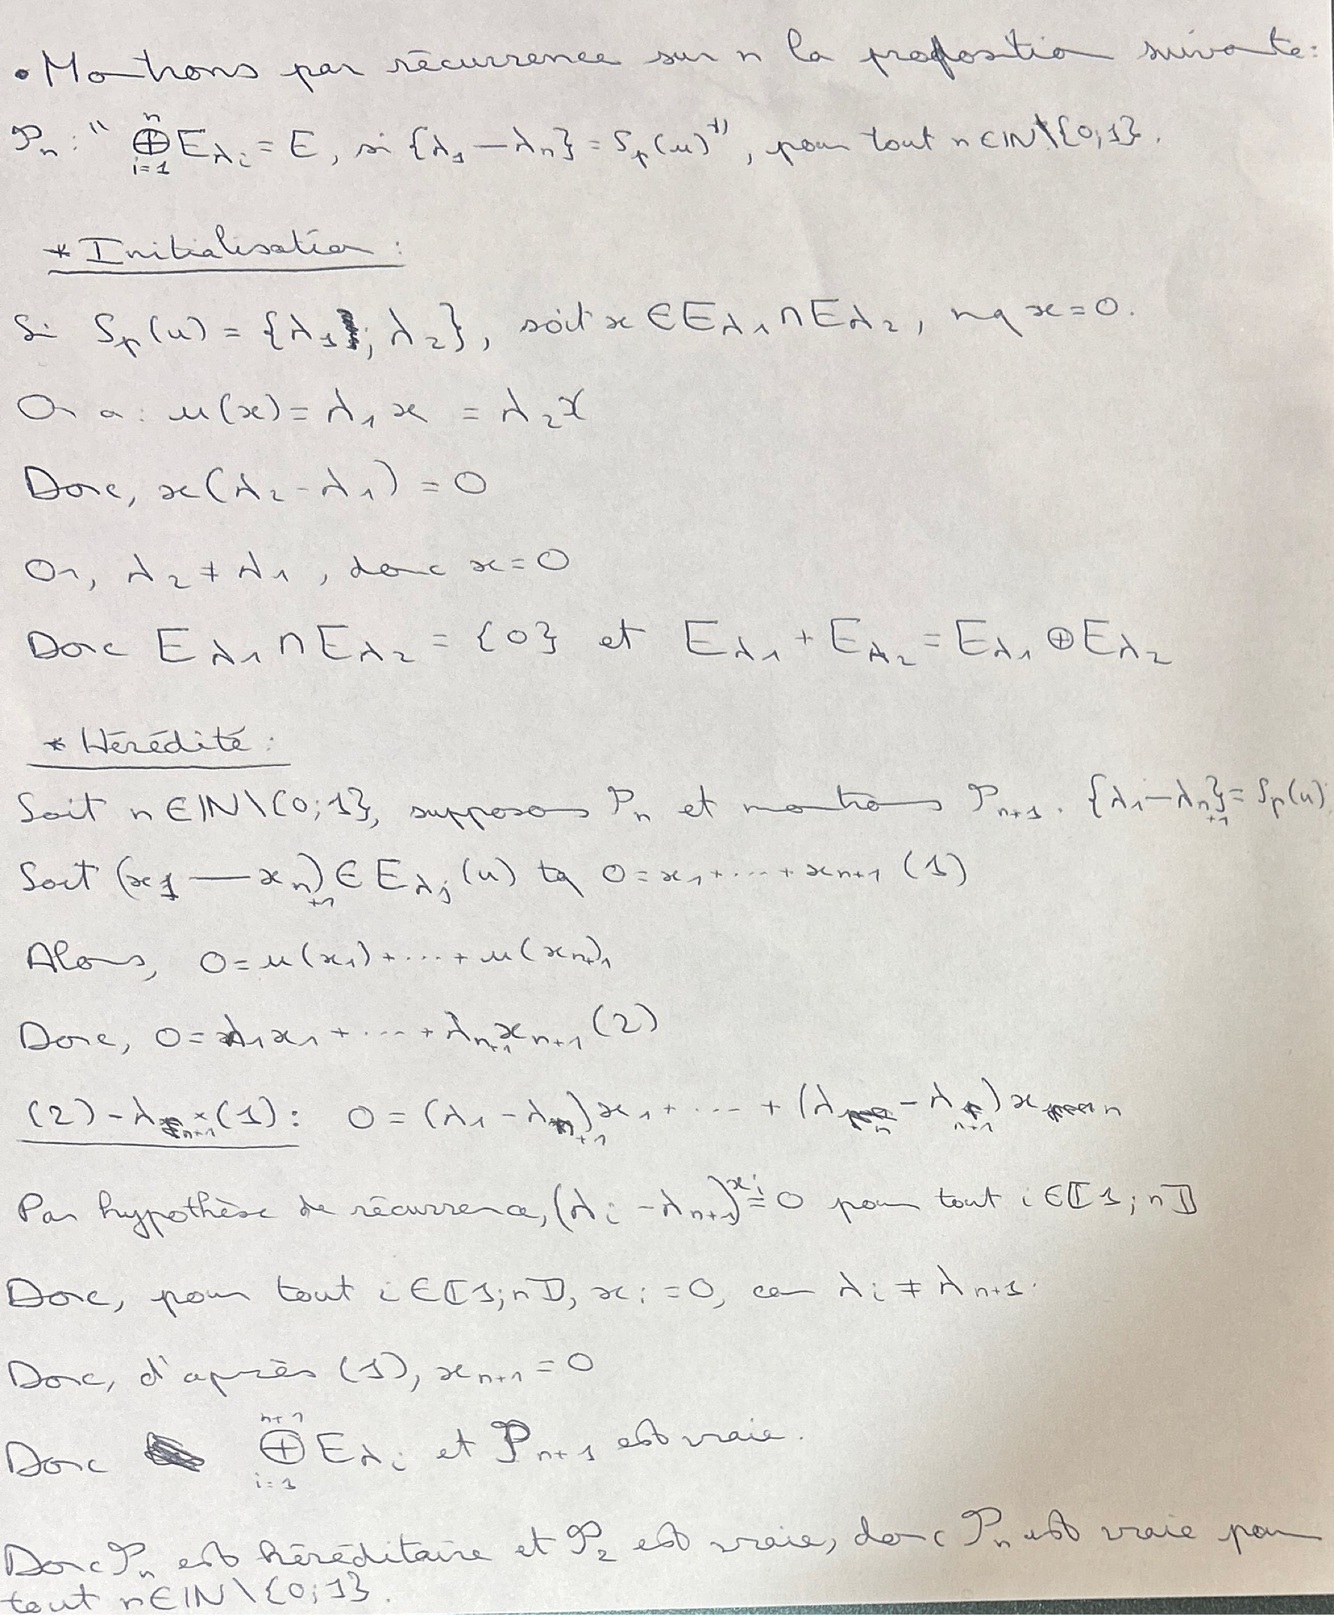 • Montrons par récurrence sur n la proposition suivante :
𝒫ₙ : " ⊕ᵢ₌₁ⁿ E_λᵢ = E, si {λ₁ — λₙ} = Sp(u) ", pour tout n ∈ ℕ\{0;1}.
* Initialisation :
Si Sp(u) = {λ₁ ; λ₂}, soit x ∈ E_λ₁ ∩ E_λ₂, mq x = 0.
On a : u(x) = λ₁x = λ₂x
Donc, x(λ₂ - λ₁) = 0
Or, λ₂ ≠ λ₁, donc x = 0
Donc E_λ₁ ∩ E_λ₂ = {0} et E_λ₁ + E_λ₂ = E_λ₁ ⊕ E_λ₂
* Hérédité :
Soit n ∈ ℕ\{0;1}, supposons 𝒫ₙ et montrons 𝒫ₙ₊₁. {λ₁ — λₙ₊₁} = Sp(u)
Soit (x₁ — xₙ₊₁) ∈ E_λⱼ(u) tq 0 = x₁ + ... + xₙ₊₁ (1)
Alors, 0 = u(x₁) + ... + u(xₙ₊₁)
Donc, 0 = λ₁x₁ + ... + λₙ₊₁xₙ₊₁ (2)
(2) - λₙ₊₁ × (1) : 0 = (λ₁ - λₙ₊₁)x₁ + ... + (λₙ - λₙ₊₁)xₙ
Par hypothèse de récurrence, (λᵢ - λₙ₊₁)xᵢ = 0 pour tout i ∈ ⟦1;n⟧
Donc, pour tout i ∈ ⟦1;n⟧, xᵢ = 0, car λᵢ ≠ λₙ₊₁.
Donc, d'après (1), xₙ₊₁ = 0
Donc ⊕ᵢ₌₁ⁿ⁺¹ E_λᵢ et 𝒫ₙ₊₁ est vraie.
Donc 𝒫ₙ est héréditaire et 𝒫₂ est vraie, donc 𝒫ₙ est vraie pour
tout n ∈ ℕ\{0;1}.